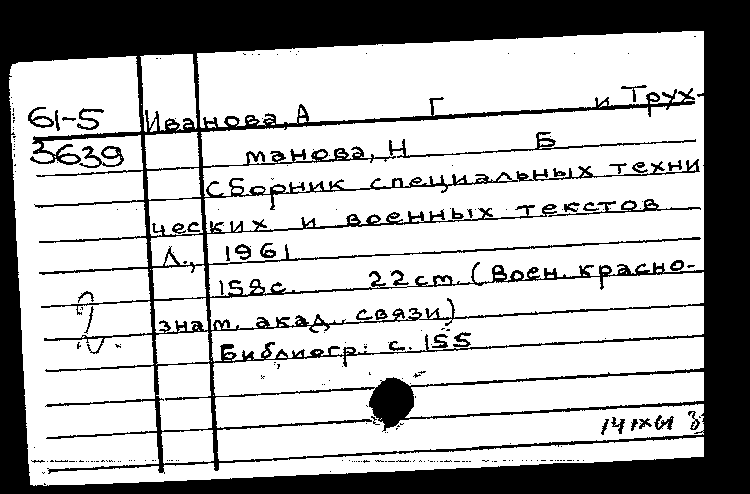 61-5 Иванова, А Г и Трух-
3639 манова, Н Б
Сборник специальных техни
ческих и военных текстов
Л., 1961
158с. 22 cm. (Воен. красно-
знам. акад. связи)
Библиогр: с. 155
2.
14 IX 61